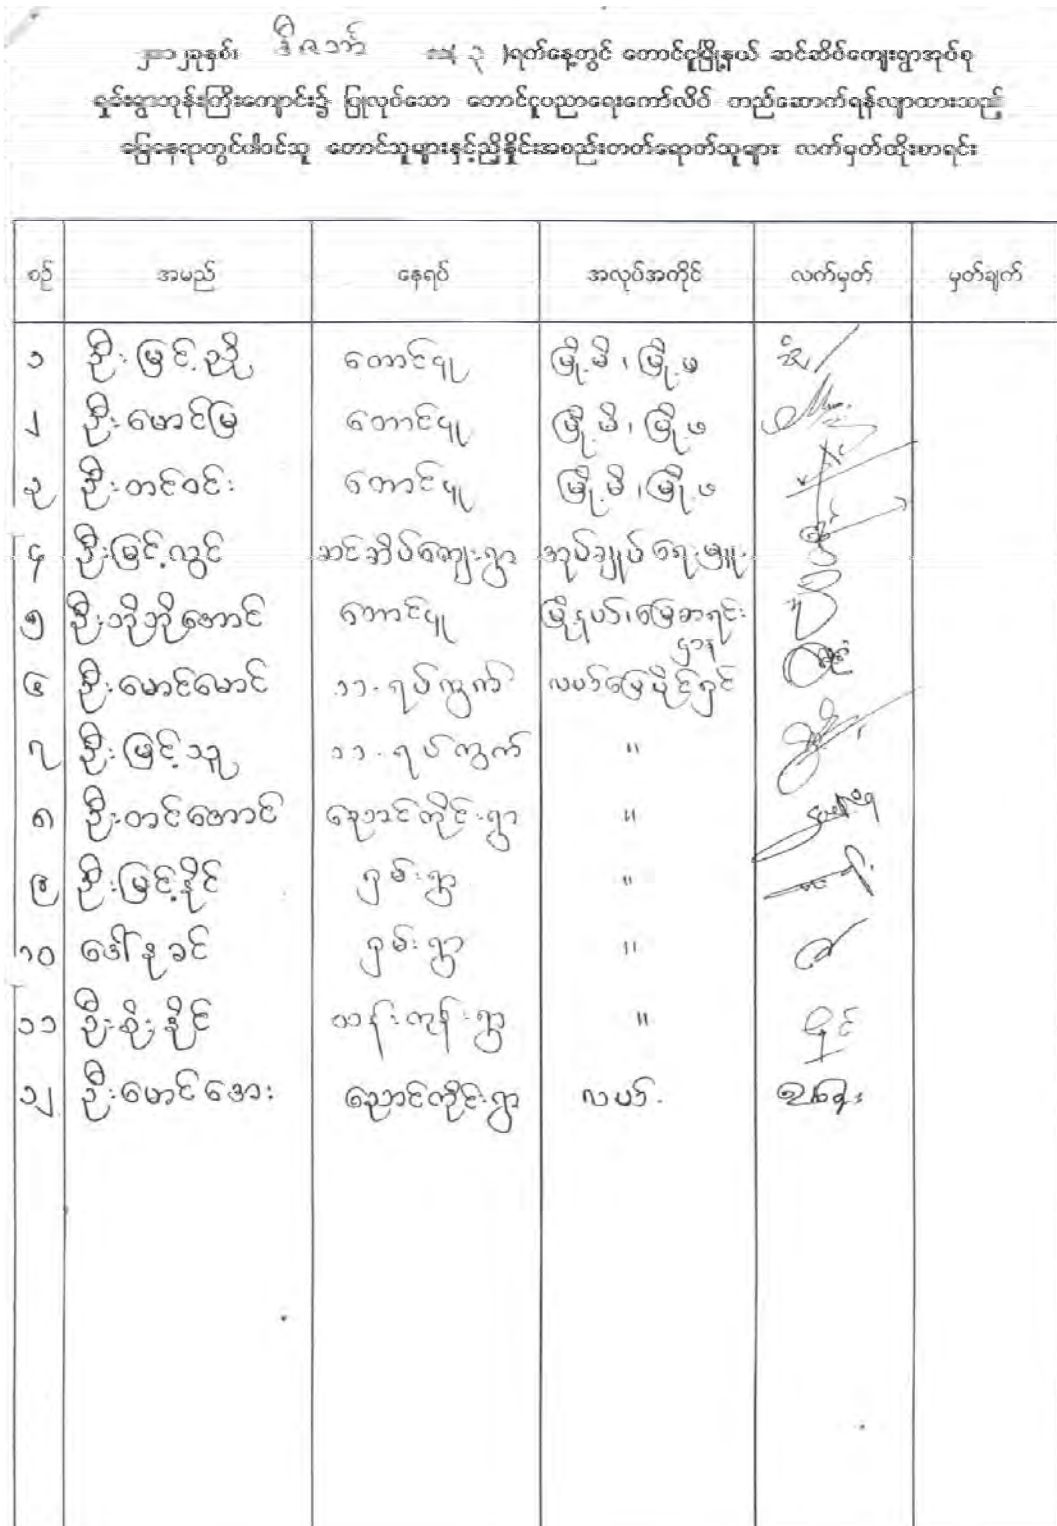 ၂၀၁၂ခုနှစ်၊ ဒီဇင်ဘာ လ( ၃ )ရက်နေ့တွင် တောင်ငူမြို့နယ် ဆင်ဆိပ်ကျေးရွာအုပ်စု
ရှမ်းရွာဘုန်းကြီးကျောင်း၌ ပြုလုပ်သော တောင်ငူပညာရေးကော်လိပ် တည်ဆောက်ရန်လျာထားသည့်
မြေနေရာတွင်ပါဝင်သူ တောင်သူများနှင့်ညှိနှိုင်းအစည်းတက်ရောက်သူများ လက်မှတ်ထိုးစာရင်း
စဉ် အမည် နေရပ် အလုပ်အကိုင် လက်မှတ် မှတ်ချက်
၁ ဦးမြင့်ညို တောင်ငူ မြို့.မိ ၊ မြို့.ဖ
၂ ဦးမောင်မြ တောင်ငူ မြို့.မိ ၊ မြို့.ဖ
၃ ဦးတင်ဝင်း တောင်ငူ မြို့.မိ ၊ မြို့.ဖ
၄ ဦးမြင့်လွင် ဆင်ဆိပ်ကျေးရွာ အုပ်ချုပ်ရေးမှူး
၅ ဦးဘိုဘိုအောင် တောင်ငူ မြို့နယ်၊မြေစာရင်း
ဌာန
၆ ဦးမောင်မောင် ၁၁-ရပ်ကွက် လယ်မြေပိုင်ရှင်
၇ ဦးမြင့်သူ ၁၁-ရပ်ကွက် "
၈ ဦးတင်အောင် ညောင်ကိုင်းရွာ "
၉ ဦးမြင့်နိုင် ရှမ်းရွာ "
၁၀ ဒေါ်နုခင် ရှမ်းရွာ "
၁၁ ဦးစိုးနိုင် သန်းကုန်းရွာ "
၁၂ ဦးမောင်အေး ညောင်ကိုင်းရွာ လယ်.